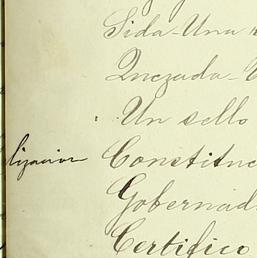 Sida - Una
Quezada - U
Un sello
lizacion Constituc
Gobernad
Certifico